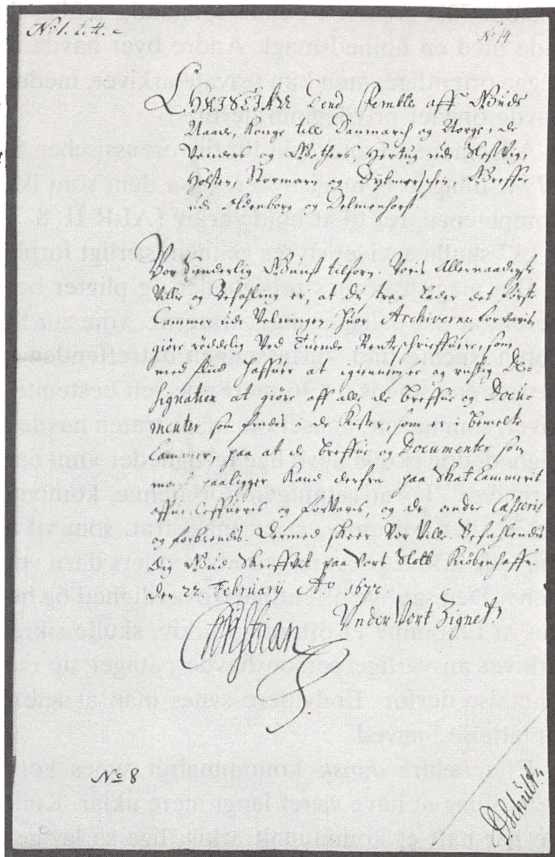 No 1. L. 4.
No 14
CHRISTIAN dend Fembte aff Guds
Naade, Konge till Danmarck og Norge, de
Venders og Gothers, Hertug udi Sleszvig,
Holsten, Stormarn og Dytmerschen, Greffve
udi Oldenborg og Delmenhorst
Vor synderlig Gunst tilforn. Voris Allernaadigste
Ville og Befahling er, at du strax lader det første
Cammer udi Velvingen, hvor Archiverne forvaris,
giøre ryddelig ved Rentschriffvere, som
med flid haffver at igiennemsee og rigtig De-
signation at giøre aff alle de breffve og Docu-
menter som findes i de Kister, som er i bemelte
Cammer, paa at de breffve og Documenter som
magt paaligger kand derfra paa Skatcammerit
offverleffveris og forvaris, og de andre Casseris
og forbrendis. Dermed skeer Vor Ville. Befahlendis
dig Gud Skreffvet paa Vort Slott Kiøbenhaffn
den 22 February Ao 1672
Under Vort Zignet
Christian
No 8
PSchult